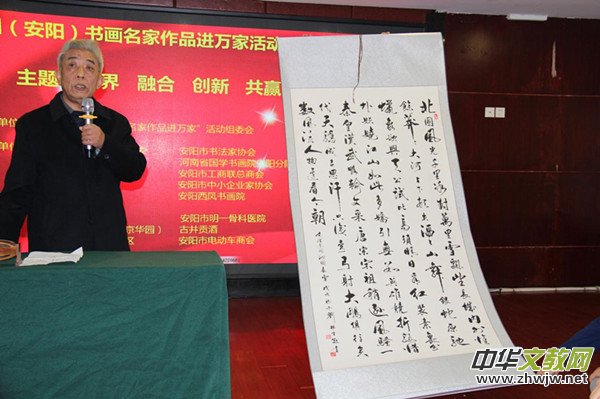 （安阳）书画名家作品进万家活动
主题 界 融合 创新 共赢
名家作品进万家”活动组委会
安阳市书法家协会
河南省国学书画院 阳分院
安阳市工商联总商会
安阳市中小企业家协会
安阳西风书画院
安阳市明一骨科医院
京华园） 古井贡酒
区 安阳市电动车商会
北国风光千里冰封万里雪飘望长城内外惟
馀莽莽大河上下顿失滔滔山舞银蛇原驰
蜡象欲与天公试比高须晴日看红装素裹分
外妖娆江山如此多娇引无数英雄竞折腰惜
秦皇汉武略输文采唐宗宋祖稍逊风骚一
代天骄成吉思汗只识弯弓射大雕俱往矣
数风流人物还看今朝
中华文教网
www.zhwjw.net